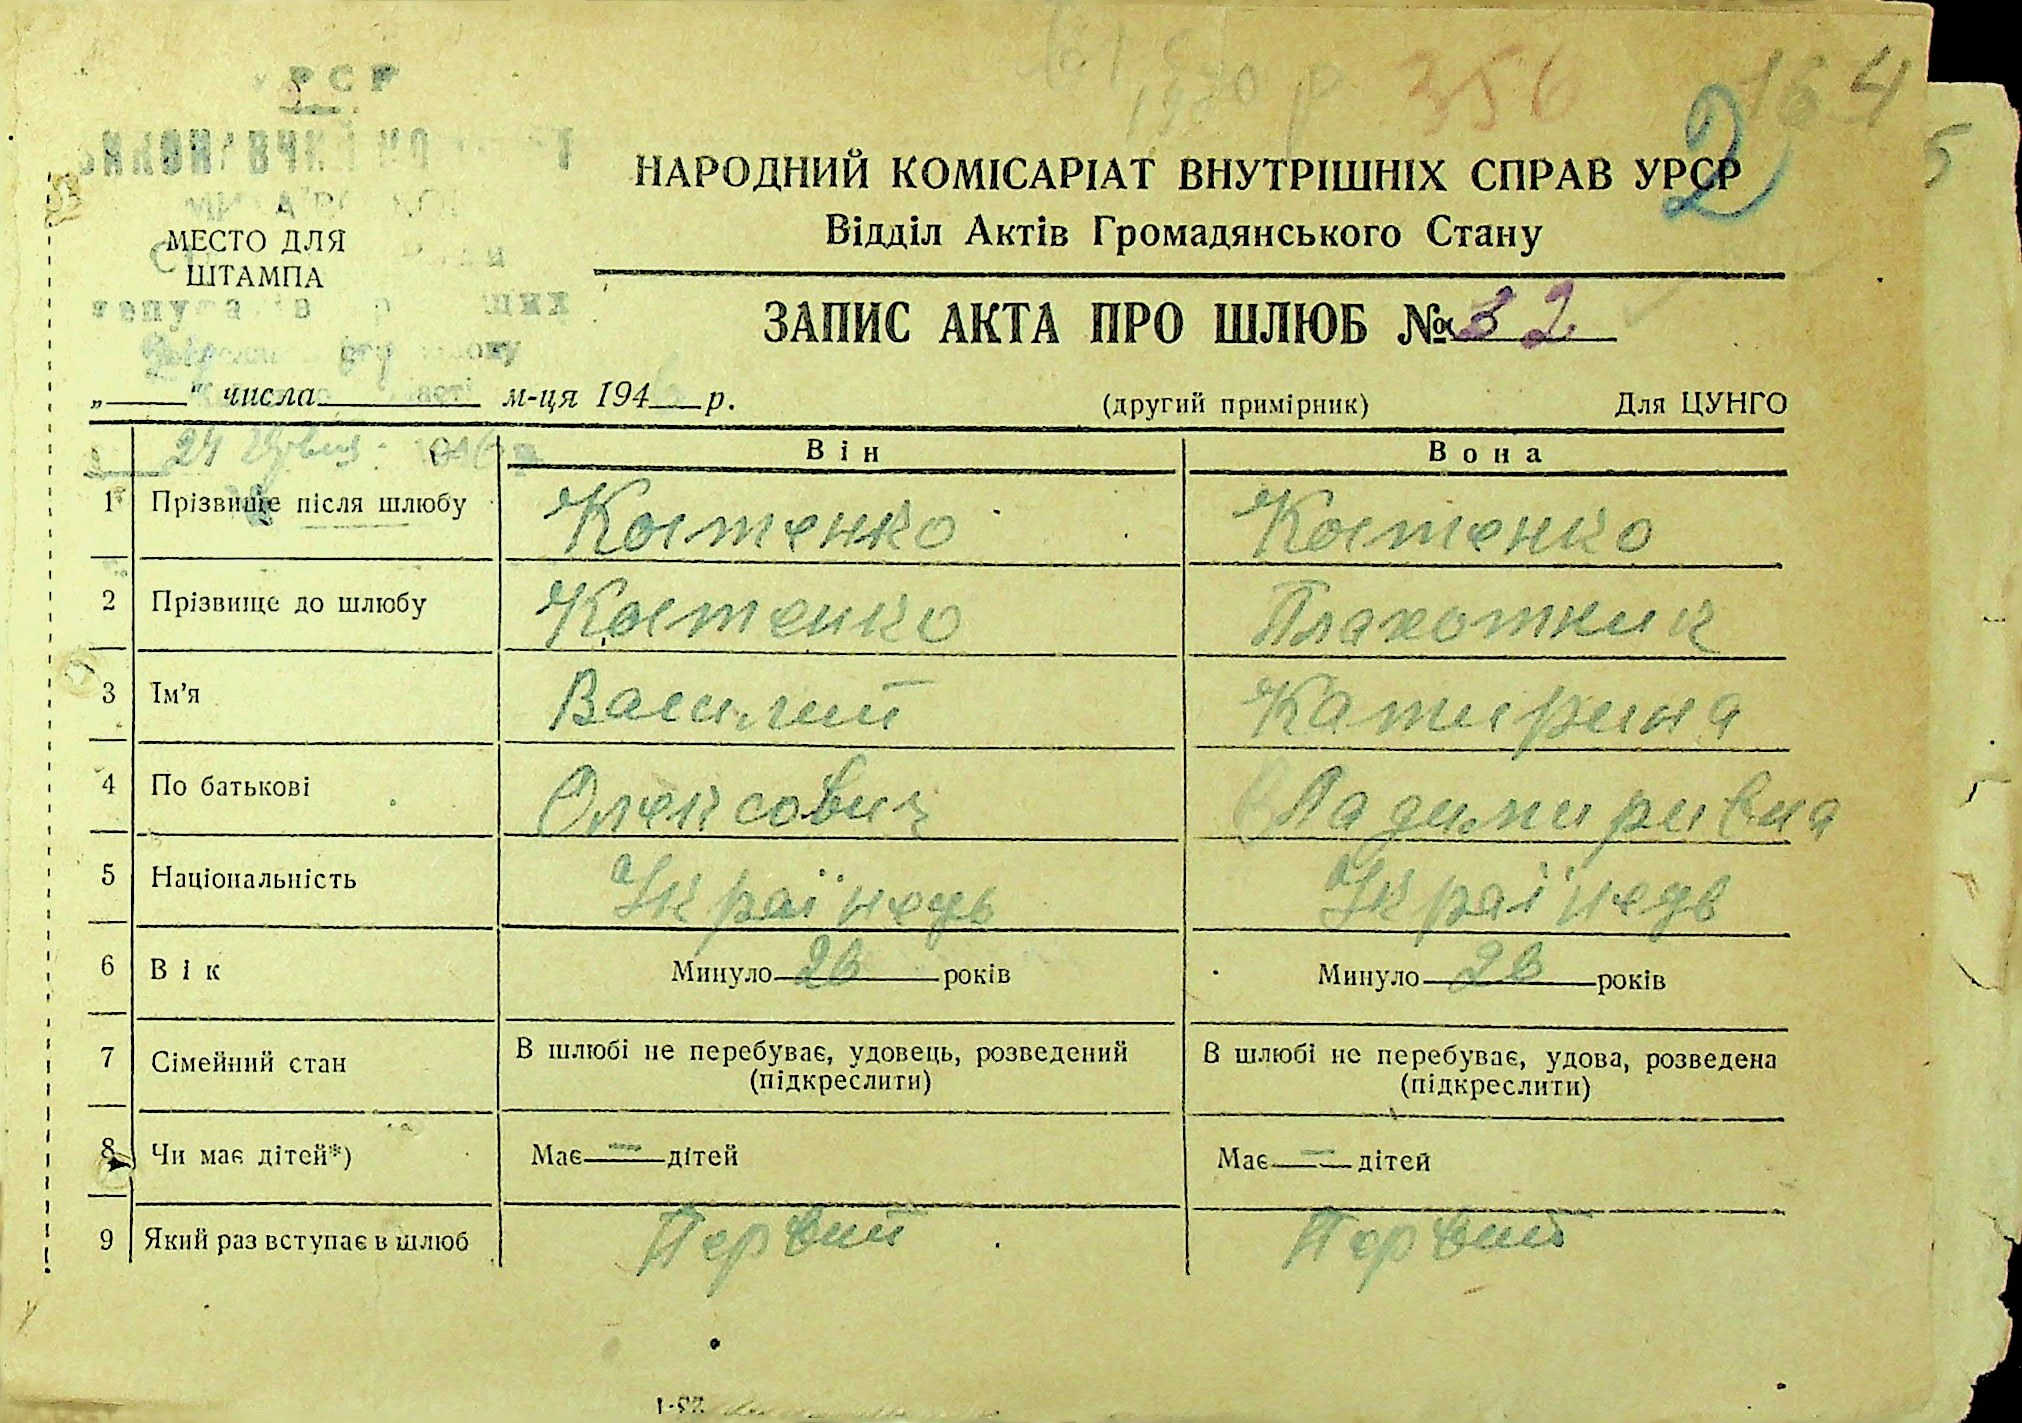 УРСР
356
164
2
5
НАРОДНИЙ КОМІСАРІАТ ВНУТРІШНІХ СПРАВ УРСР
Відділ Актів Громадянського Стану
МЕСТО ДЛЯ
ШТАМПА
ЗАПИС АКТА ПРО ШЛЮБ № 32
„ “ числа м-ця 194 р.
(другий примірник) Для ЦУНГО
24
Він Вона
1 Прізвище після шлюбу Костенко Костенко
2 Прізвище до шлюбу Костенко Плахотник
3 Ім'я Василий Катирина
4 По батькові Олексович Владимиривна
5 Національність Українець Українець
6 Вік Минуло років Минуло років
7 Сімейний стан В шлюбі не перебуває, удовець, розведений (підкреслити) В шлюбі не перебуває, удова, розведена (підкреслити)
8 Чи має дітей*) Має — дітей Має — дітей
9 Який раз вступає в шлюб Первий Первий